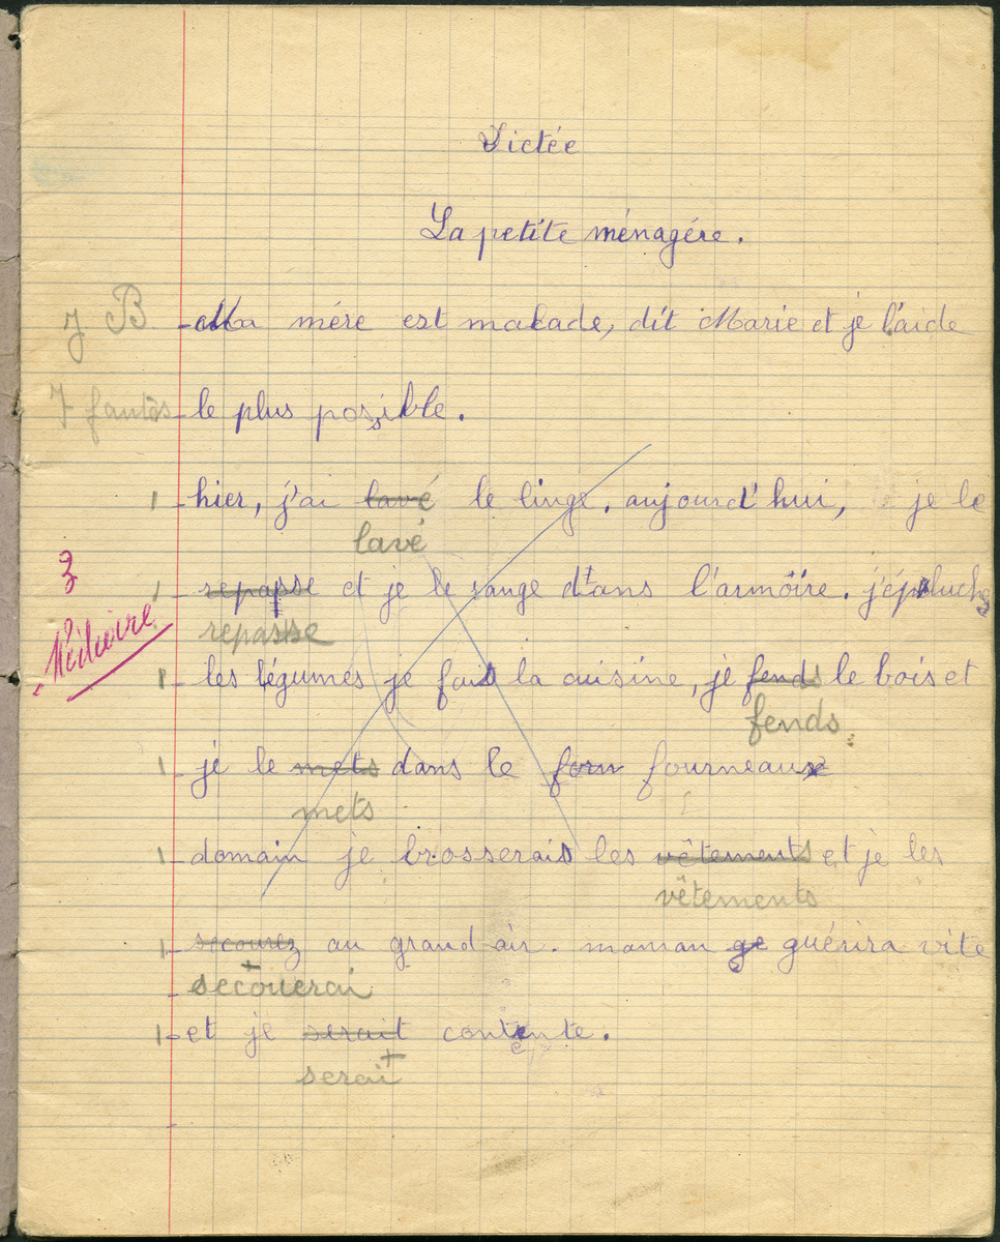 Dictée
La petite ménagére.
J B
Ma mére est malade, dit Marie et je l'aide
7 fautes
le plus possible.
1 hier, j'ai lavé le linge. aujourd'hui, je le
lavé
3
Médiocre
1 repasse et je le range dans l'armoire. j'épluche
repasse
1 les légumes je fais la cuisine, je fends le bois et
fends
1 je le mets dans le forn fourneaux
mets
1 domain je brosserais les vêtements et je les
vêtements
1 secourez au grand air. maman ge guérira vite
secouerai
1 et je serait contente.
serai